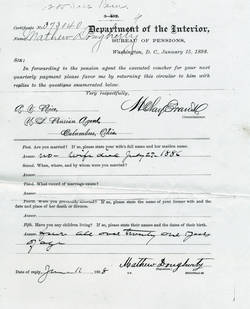 3—402.
Certificate No. 373040
Department of the Interior,
Mathew Dougherty
BUREAU OF PENSIONS,
Washington, D. C., January 15, 1898.
SIR:
In forwarding to the pension agent the executed voucher for your next
quarterly payment please favor me by returning this circular to him with
replies to the questions enumerated below.
Very respectfully,
Commissioner.
U. S. Pension Agent,
Columbus, Ohio
First. Are you married? If so, please state your wife's full name and her maiden name.
Answer. no— wife died July 27— 1886
Second. When, where, and by whom were you married?
Answer.
Third. What record of marriage exists?
Answer.
Fourth. Were you previously married? If so, please state the name of your former wife and the
date and place of her death or divorce.
Answer.
Fifth. Have you any children living? If so, please state their names and the dates of their birth.
Answer. all over twenty one years
of age
Date of reply, 1898
Mathew Dougherty
(Signature.)